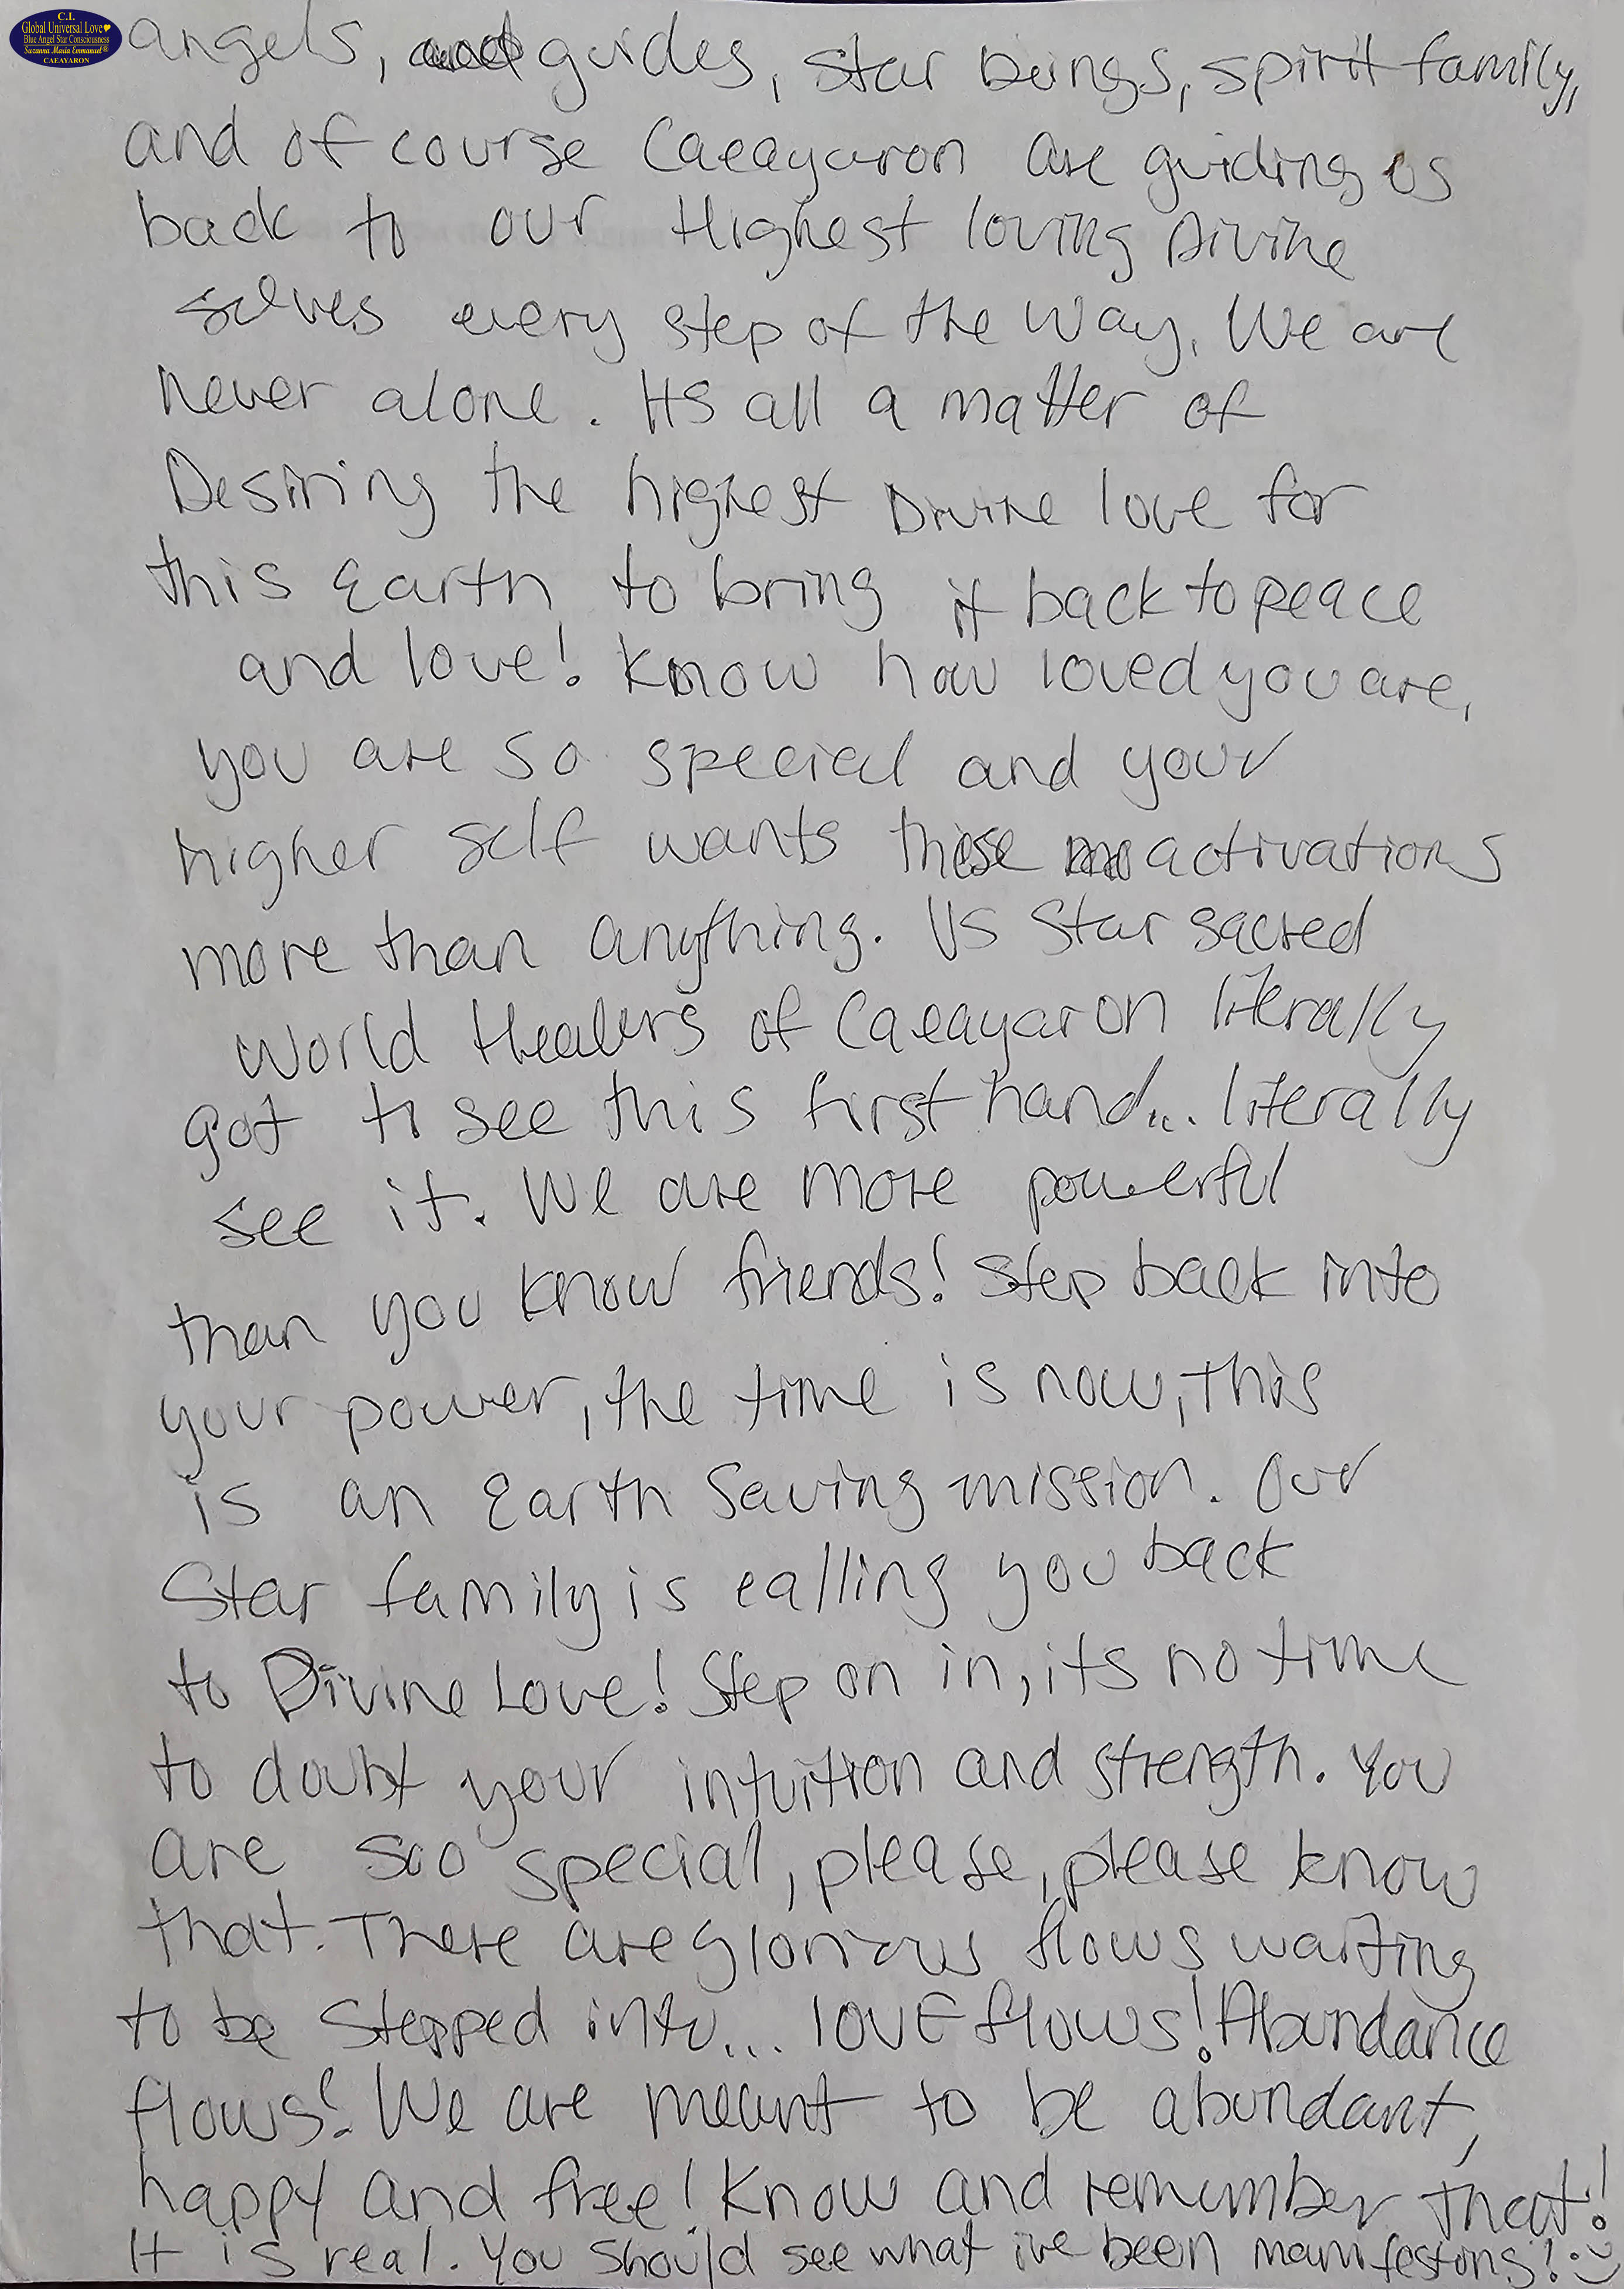 C.I.
Global Universal Love
Blue Angel Star Consciousness
Suzanna Maria Emmanuel®
CAEAYARON
angels, guides, star beings, spirit family,
and of course Caeayaron are guiding us
back to our Highest loving Divine
selves every step of the way. We are
never alone. Its all a matter of
Desiring the highest Divine love for
this Earth to bring it back to peace
and love! Know how loved you are,
you are so special and your
higher self wants these activations
more than anything. Us Star sacred
World Healers of Caeayaron literally
got to see this first hand... literally
see it. We are more powerful
than you know friends! Step back into
your power, the time is now, this
is an Earth Saving mission. Our
Star family is calling you back
to Divine Love! Step on in, its no time
to doubt your intuition and strength. You
are soo special, please, please know
that. There are glorious flows waiting
to be stepped into... lovE flows! Abundance
flows! We are meant to be abundant,
happy and free! Know and remember that!
It is real. You should see what ive been manifesting! :)